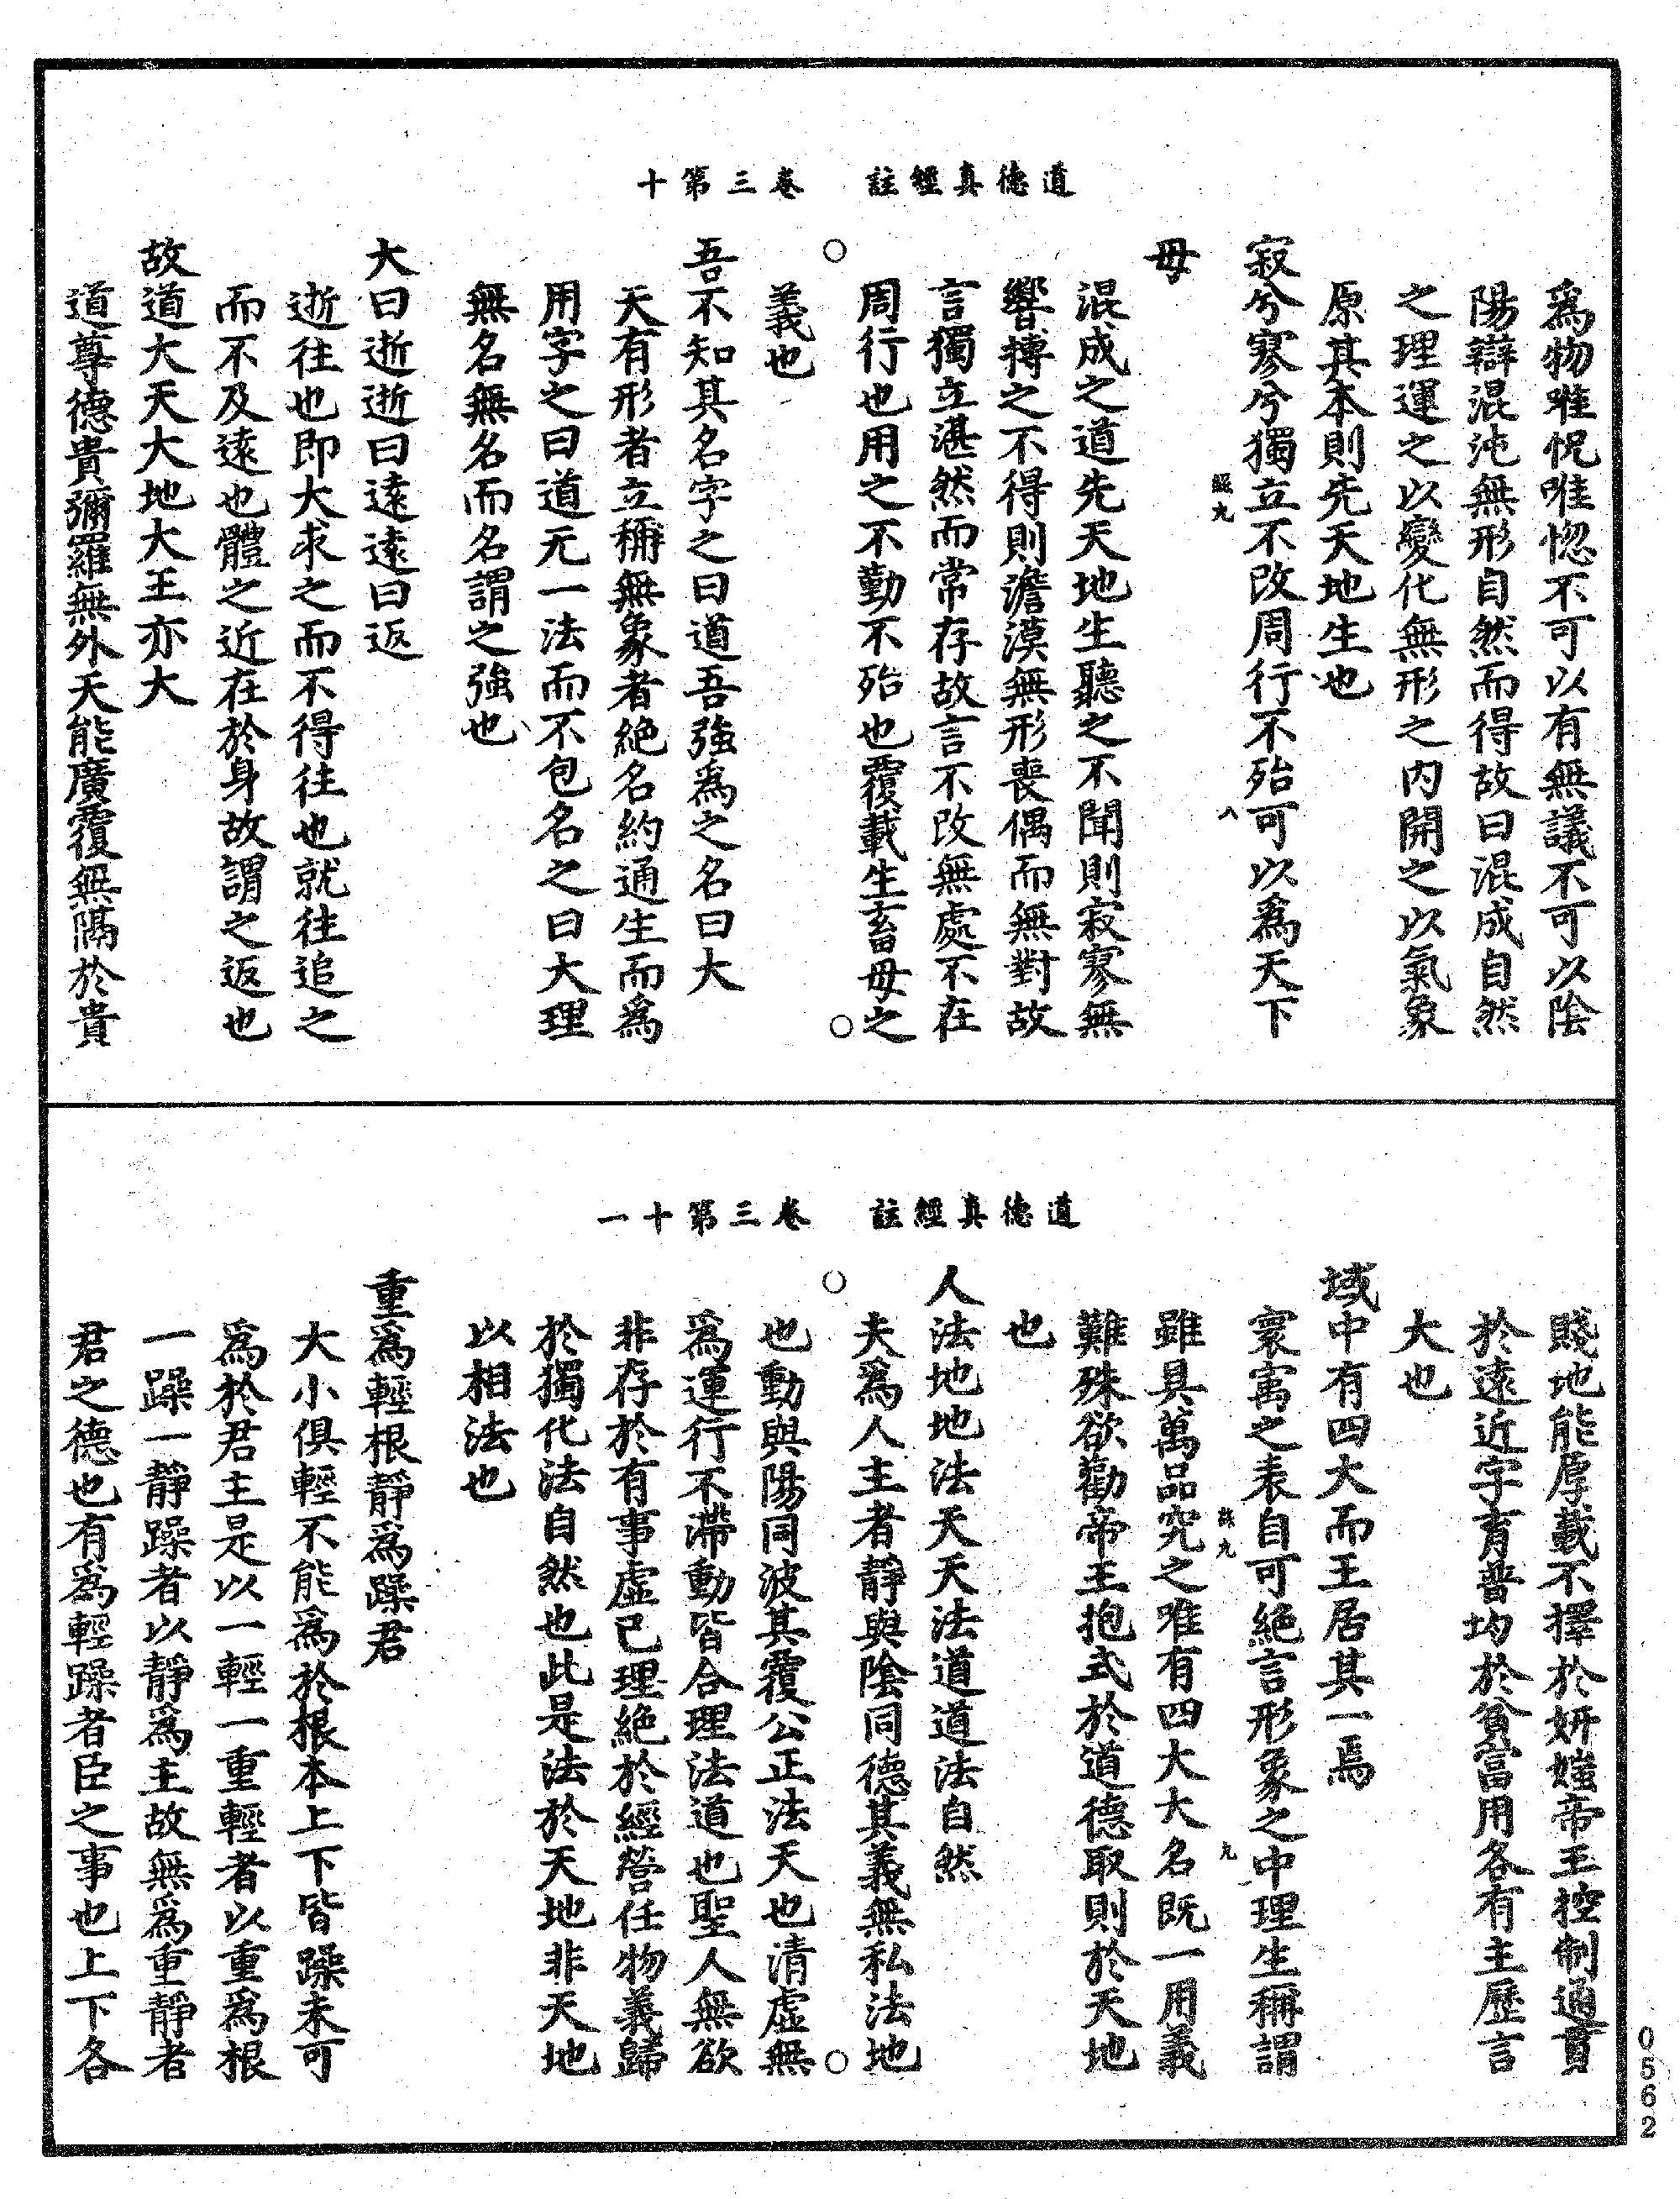 道德真經註　卷三第十
爲物唯怳唯惚不可以有無議不可以陰
陽辯混沌無形自然而得故曰混成自然
之理運之以變化無形之内開之以氣象
原其本則先天地生也
寂兮寥兮獨立不改周行不殆可以爲天下
母
混成之道先天地生聽之不聞則寂寥無
響摶之不得則澹漠無形喪偶而無對故
言獨立湛然而常存故言不改無處不在
周行也用之不勤不殆也覆載生畜母之
義也
吾不知其名字之曰道吾強爲之名曰大
天有形者立稱無象者絶名約通生而爲
用字之曰道元一法而不包名之曰大理
無名無名而名謂之強也
大曰逝逝曰遠遠曰返
逝往也即大求之而不得往也就往追之
而不及遠也體之近在於身故謂之返也
故道大天大地大王亦大
道尊德貴彌羅無外天能廣覆無隔於貴
道德真經註　卷三第十一
賤地能厚載不擇於妍媸帝王控制通貫
於遠近字育普均於貧富用各有主歷言
大也
域中有四大而王居其一焉
寰寓之表自可絶言形象之中理生稱謂
雖具萬品究之唯有四大大名既一用義
難殊欲勸帝王抱式於道德取則於天地
也
人法地地法天天法道道法自然
夫爲人主者靜與陰同德其義無私法地
也動與陽同波其覆公正法天也清虛無
爲運行不滯動皆合理法道也聖人無欲
非存於有事虛己理絶於經營任物義歸
於獨化法自然也此是法於天地非天地
以相法也
重爲輕根靜爲躁君
大小俱輕不能爲於根本上下皆躁未可
爲於君主是以一輕一重輕者以重爲根
一躁一靜躁者以靜爲主故無爲重靜者
君之德也有爲輕躁者臣之事也上下各
0562